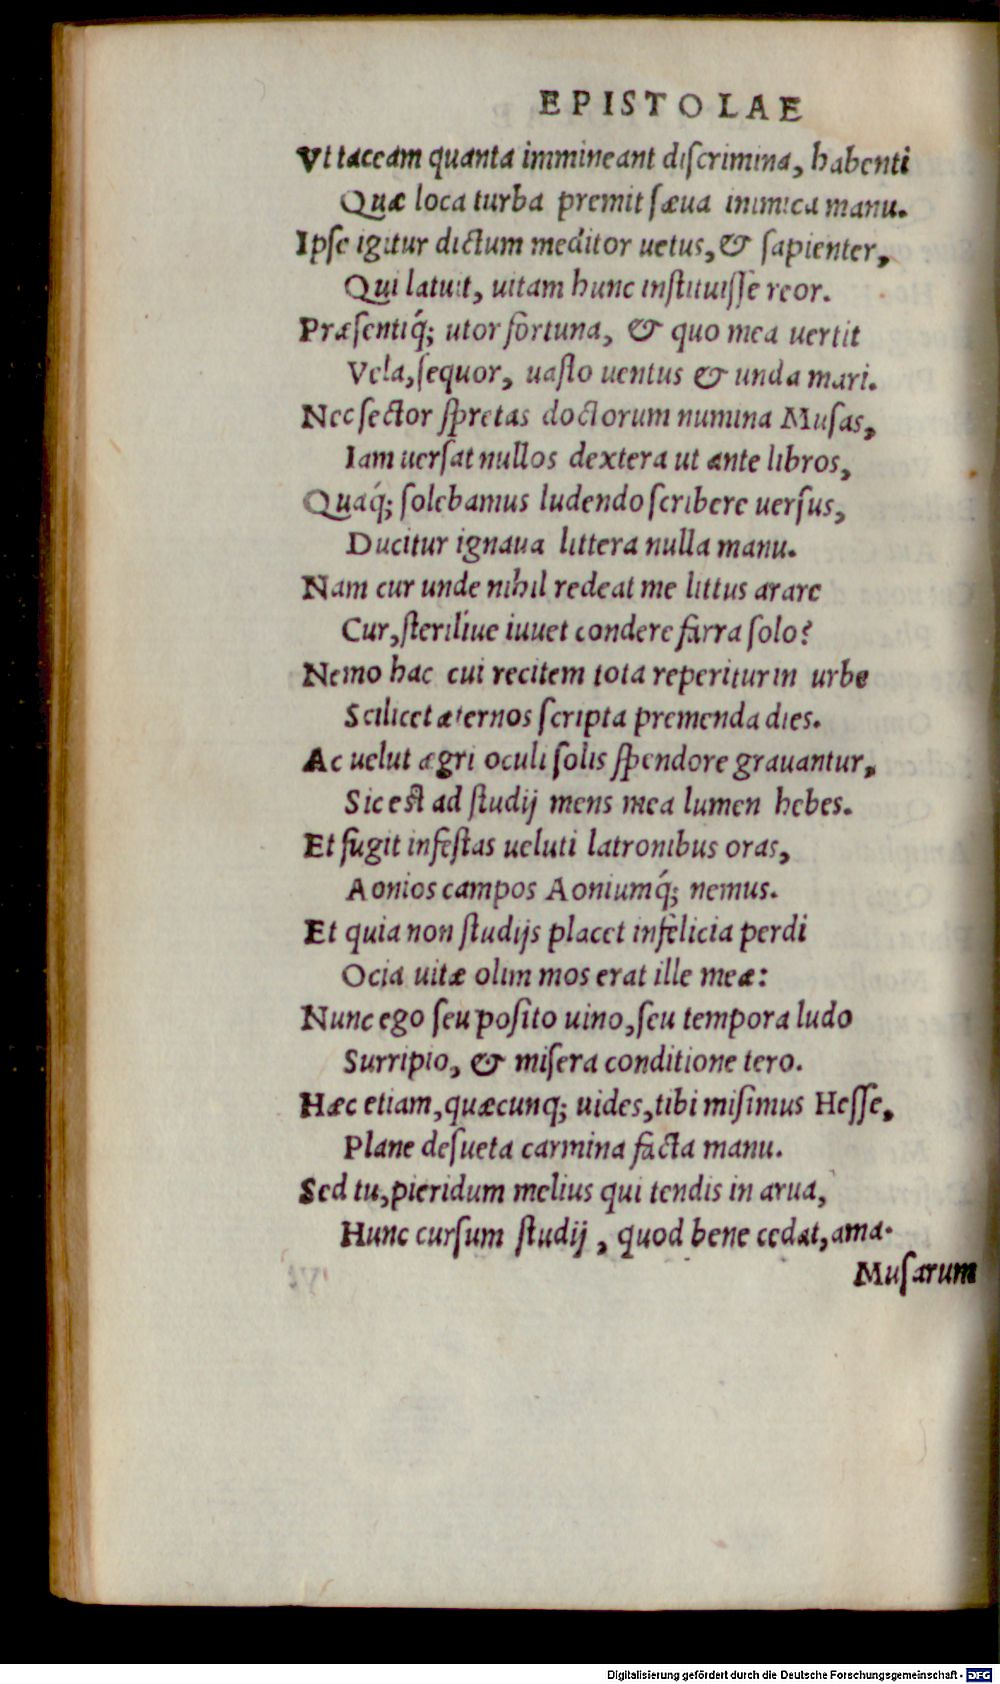 EPISTOLAE
Vt taceam quanta immineant discrimina, habenti
Quæ loca turba premit sæua inimica manu.
Ipse igitur dictum meditor uetus, & sapienter,
Qui latuit, uitam hunc instituisse reor.
Præsentiq́; utor fortuna, & quo mea uertit
Vela, sequor, uasto uentus & unda mari.
Nec sector spretas doctorum numina Musas,
Iam uersat nullos dextera ut ante libros,
Quaq́; solebamus ludendo scribere uersus,
Ducitur ignaua littera nulla manu.
Nam cur unde nihil redeat me littus arare
Cur, steriliue iuuet condere farra solo?
Nemo hac cui recitem tota reperitur in urbe
Scilicet æternos scripta premenda dies.
Ac uelut ægri oculi solis spendore grauantur,
Sic est ad studij mens mea lumen hebes.
Et fugit infestas ueluti latronibus oras,
Aonios campos Aoniumq́; nemus.
Et quia non studijs placet infelicia perdi
Ocia uitæ olim mos erat ille meæ:
Nunc ego seu posito uino, seu tempora ludo
Surripio, & misera conditione tero.
Hæc etiam, quæcunq; uides, tibi misimus Hesse,
Plane desueta carmina facta manu.
Sed tu, pieridum melius qui tendis in arua,
Hunc cursum studij, quod bene cedat, ama.
Musarum
Digitalisierung gefördert durch die Deutsche Forschungsgemeinschaft - DFG